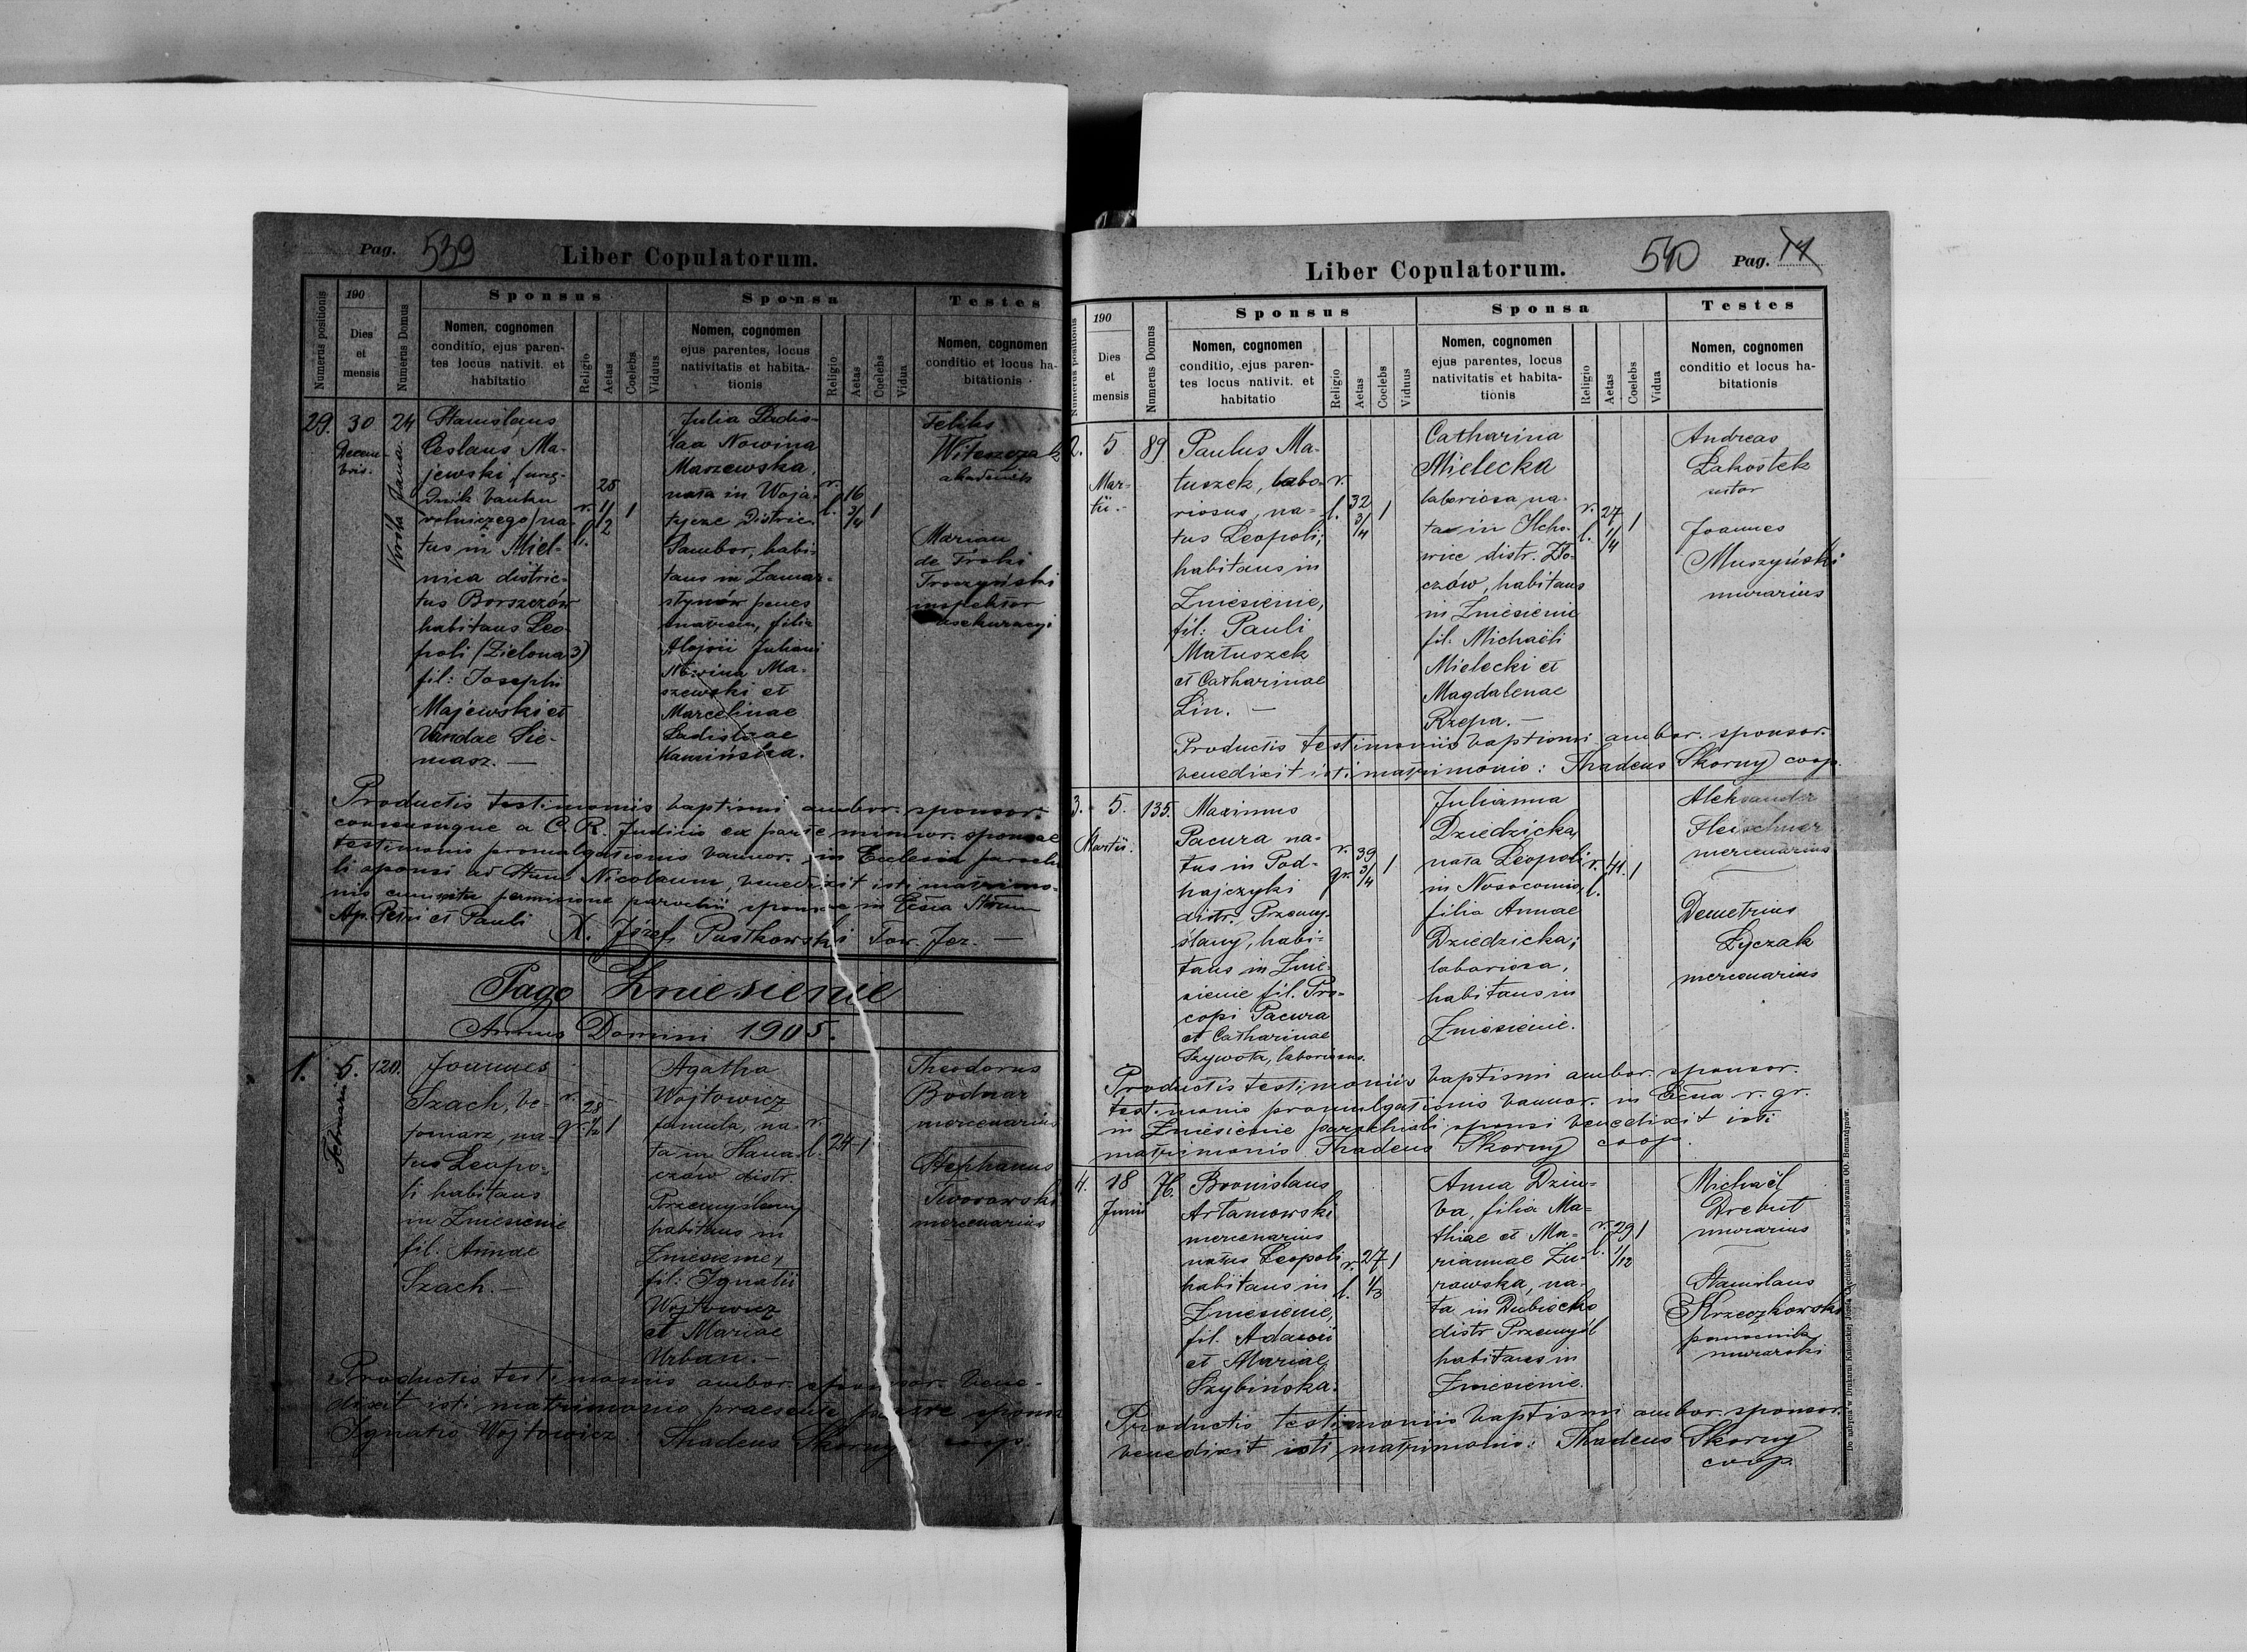 Pag. 539
Liber Copulatorum.
Numerus positionis
190
Dies
et
mensis
Numerus Domus
Sponsus
Nomen, cognomen
conditio, ejus paren-
tes locus nativit. et
habitatio
Religio
Aetas
Coelebs
Viduus
Sponsa
Nomen, cognomen
ejus parentes, locus
nativitatis et habita-
tionis
Religio
Aetas
Coelebs
Vidua
Testes
Nomen, cognomen
conditio et locus ha-
bitationis
29.
30
Decem-
bris.
24
Króla Jana
Stanislaus
Ceslaus Ma-
jewski (urzę-
dnik banku
rolniczego) na-
tus in Miel-
nica distric-
tus Borszczów
habitans Leo-
poli (Zielona 3)
fil: Josephi
Majewski et
Vandae Sie-
masz. —
r.
l.
28
1/2
1
Julia Ladis-
laa Nowina
Maszewska,
nata in Woja-
tycze Distric.
Sambor, habi-
tans in Zamar-
stynów penes
matrem, filia
Alojsii Juliani
Nowina Ma-
szewski et
Marcelinae
Ladislaae
Kamińska.
r.
l.
16
3/4
1
Feliks
akademik
Marian
de Troki
Troczyński
inspektor
asekuracyi
Productis testimoniis baptismi ambor. sponsor.
consensuque a C. R. Judicio ex parte minor. sponsae
testimonio promulgationis bannor. in Ecclesia parochia-
li sponsi ad Stum Nicolaum, benedixit isti matrimo-
nio permissione parochi sponsae in Ecsia Storum
Ap. Petri et Pauli X. Józef Pustkowski Tow. Jez. —
Pago Zniesienie
Annus Domini 1905.
1.
5.
Februarii
120.
Joannes
Szach, be-
tonarz, na-
tus Leopo-
li habitans
in Zniesienie
fil. Annae
Szach. —
r.
gr.
28
1/2
1
Agatha
Wojtowicz
famula, na-
ta in Hana-
czów distr.
Przemyślany
habitans in
Zniesienie,
fil: Ignatii
Wojtowicz
et Mariae
Urban. —
r.
l.
24
1
Theodorus
Bodnar
mercenarius
Stephanus
Tworowski
mercenarius
Productis testimoniis ambor. sponsor. bene-
dixit isti matrimonio praesente patre sponsae
Ignatio Wojtowicz. Thadeus Skorny coop.
Liber Copulatorum.
540
Pag. 14
Numerus positionis
190
Dies
et
mensis
Numerus Domus
Sponsus
Nomen, cognomen
conditio, ejus paren-
tes locus nativit. et
habitatio
Religio
Aetas
Coelebs
Viduus
Sponsa
Nomen, cognomen
ejus parentes, locus
nativitatis et habita-
tionis
Religio
Aetas
Coelebs
Vidua
Testes
Nomen, cognomen
conditio et locus ha-
bitationis
2.
5
Mar-
tii. —
89
Paulus Ma-
tuszek, labo-
riosus, na-
tus Leopoli;
habitans in
Zniesienie,
fil: Pauli
Matuszek
et Catharinae
Lin. —
r.
l.
32
3/4
1
Catharina
Mielecka
laboriosa na-
ta in Ilcho-
wice distr. Zło-
czów, habitans
in Zniesienie
fil. Michaëli
Mielecki et
Magdalenae
Rzepa. —
r.
l.
27
1/4
1
Andreas
Łakostek
sutor
Joannes
Muszyński
murarius
Productis testimoniis baptismi ambor. sponsor.
benedixit isti matrimonio: Thadeus Skorny coop.
3.
5.
Martii.
135.
Maximus
Pacura na-
tus in Pod-
hajczyki
distr. Przemy-
ślany, habi-
tans in Znie-
sienie fil. Pro-
copi Pacura
et Catharinae
Szywota, laboriosus.
r.
gr.
39
3/4
1
Julianna
Dziedzicka,
nata Leopoli
in Nosocomio,
filia Annae
Dziedzicka;
laboriosa,
habitans in
Zniesienie.
r.
l.
41.
1
Aleksander
Fleischner
mercenarius
Demetrius
Łyczak
mercenarius
Productis testimoniis baptismi ambor. sponsor.
testimonio promulgationis bannor. in Ecña r. gr.
in Zniesienie parochiali sponsi benedixit isti
matrimonio Thadeus Skorny coop.
4.
18
Junii
76.
Bronislaus
Artamowski
mercenarius
natus Leopoli
habitans in
Zniesienie,
fil. Adami
et Mariae
Szybińska.
r.
l.
27
1/3
1
Anna Dziu-
ba, filia Ma-
thiae et Ma-
riannae Żu-
rawska, na-
ta in Dubiecko
distr Przemyśl
habitans in
Zniesienie.
r.
l.
29
1/12
1
Michaël
Drebut
murarius
Stanislaus
Krzeczkowski
pomocnik
murarski
Productis testimoniis baptismi ambor. sponsor.
benedixit isti matrimonio: Thadeus Skorny
coop.
Do nabycia w Drukarni Katolickiej Józefa Chęcińskiego — w zabudowaniu OO. Bernardynów.